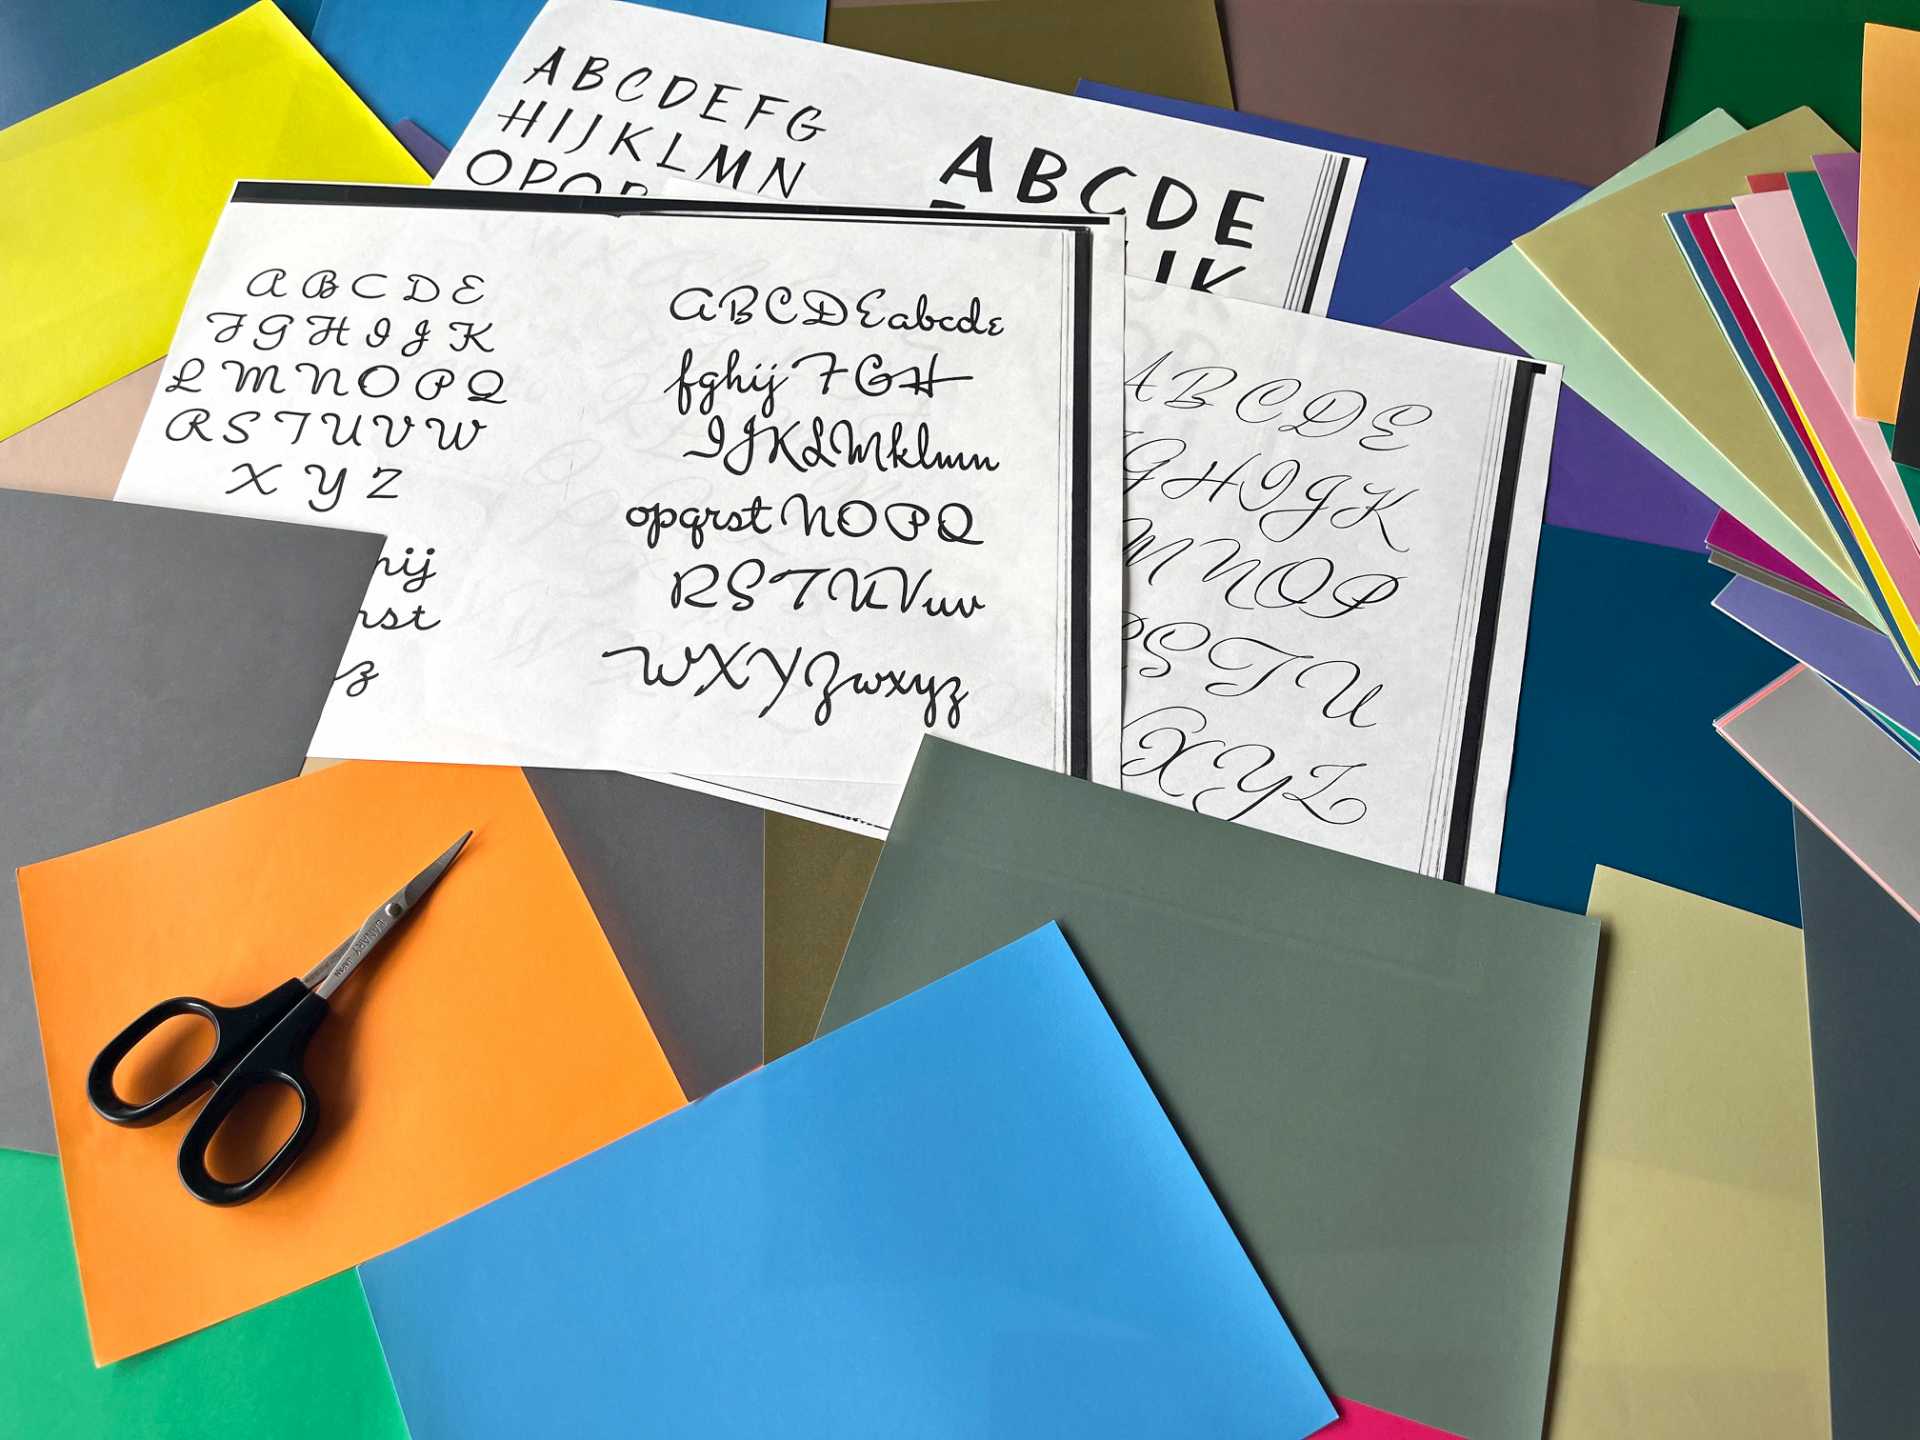 ABCDEFG
HIJKLMN
OPQR
ABCDE
JK
A B C D E
F G H I J K
L M N O P Q
R S T U V W
X Y Z
hij
rst
z
ABCDEabcde
fghijFGH
IJKLMklmn
opqrstNOPQ
RSTUVuv
WXYZwxyz
ABCDE
GHIJK
MNOP
STU
XYZ
CANARY